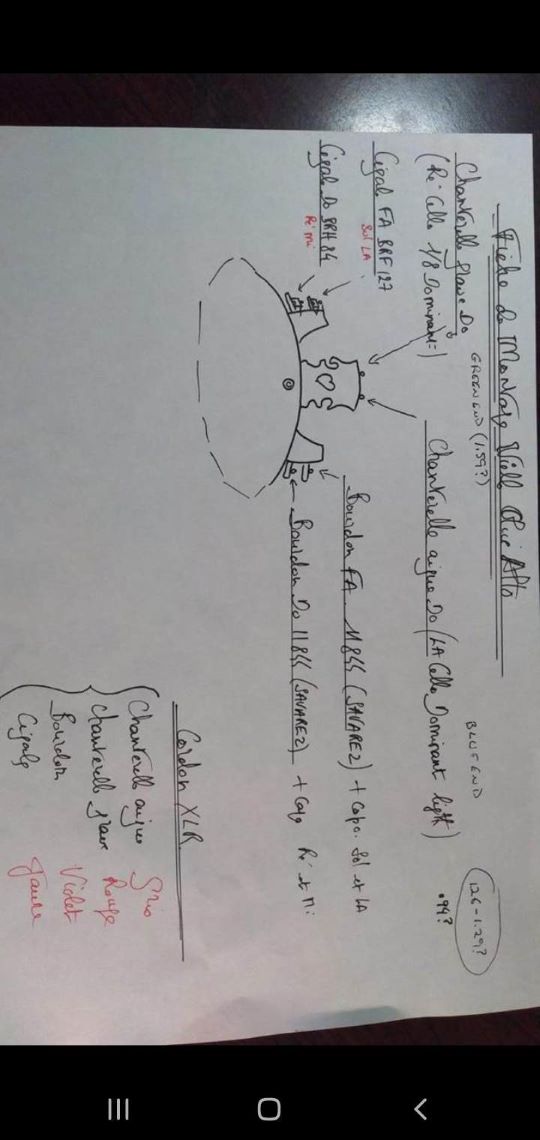 Fiche de Montage Vielle Alto
Chanterelle grave Do
(Ré Cello 1/8 Dominant)
GREEN END (1.59?)
Chanterelle aigue Do (LA Cello Dominant light)
BLUE END
126-1.29?
.94?
Cigale FA BRF 127
Sol LA
Cigale Do BRH 84
Ré Mi
Bourdon FA 11844 (SAVAREZ) + Capo. Sol et LA
Bourdon Do 11844 (SAVAREZ) + Capo Ré et Mi
Cordon XLR
Chanterelle aigue Gris
Chanterelle grave Rouge
Bourdon Violet
Cigale Jaune